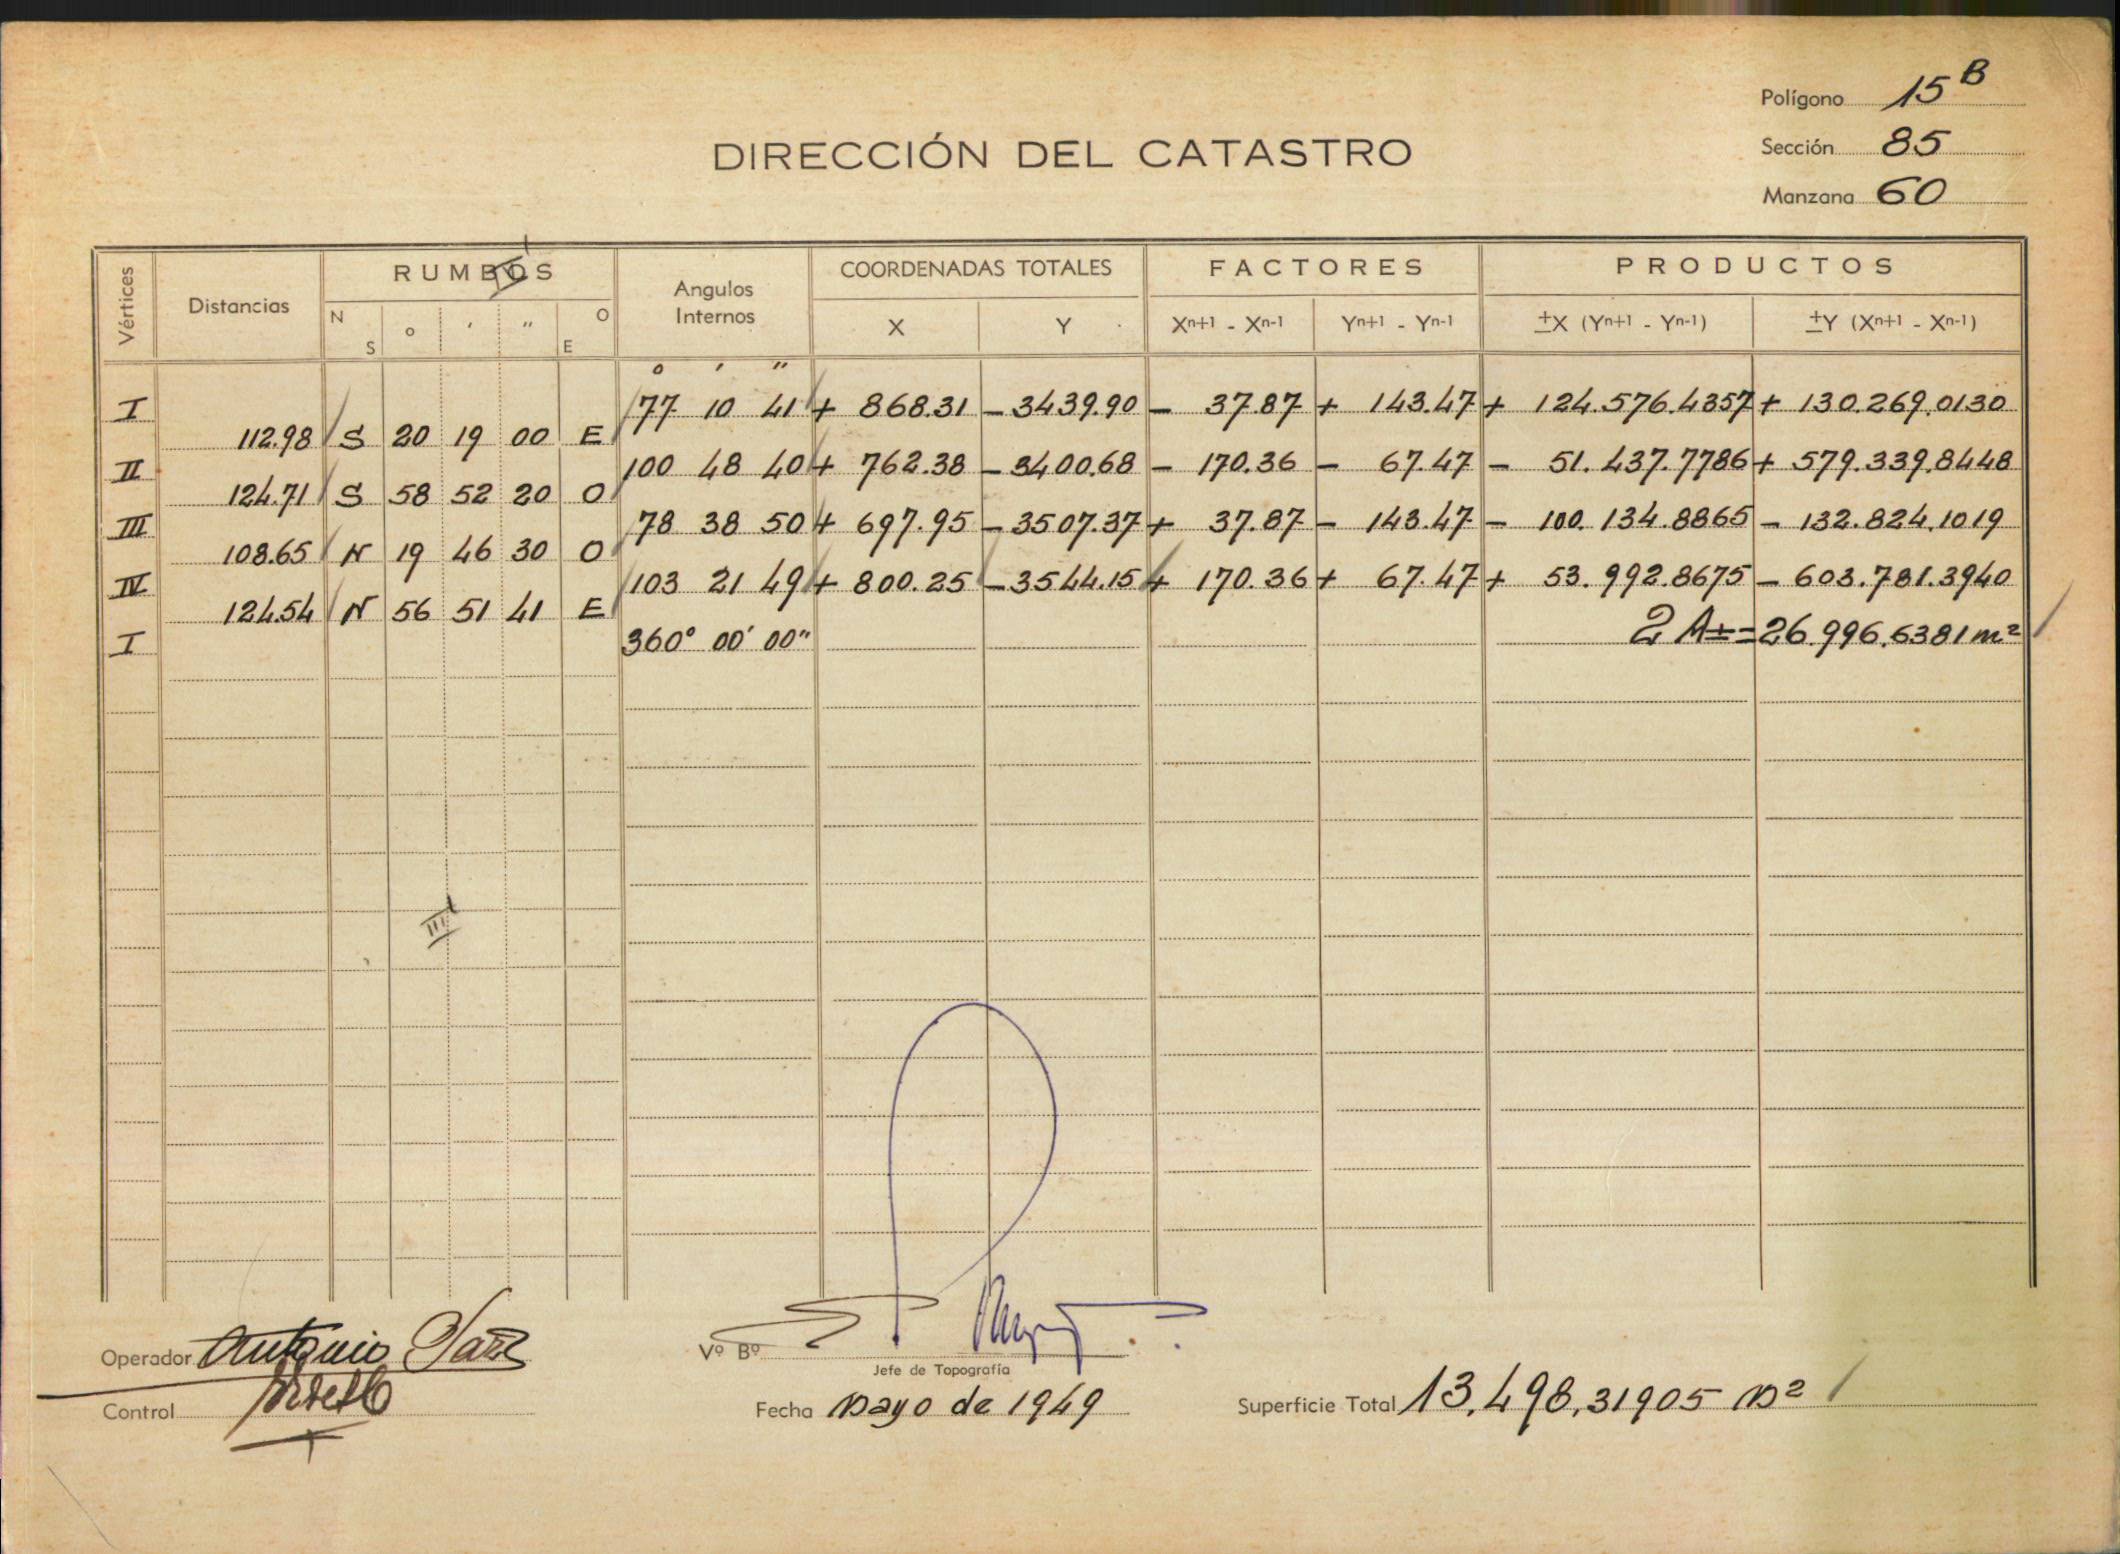 Polígono 15 B
DIRECCIÓN DEL CATASTRO
Sección 85
Manzana 60
Vértices Distancias RUMBOS Angulos Internos COORDENADAS TOTALES FACTORES PRODUCTOS
N S o ′ ″ O E X Y Xn+1 - Xn-1 Yn+1 - Yn-1 ±X (Yn+1 - Yn-1) ±Y (Xn+1 - Xn-1)
o ′ ″
I 77 10 41 + 868.31 - 3439.90 - 37.87 + 143.47 + 124.576.4357 + 130.269.0130
112.98 S 20 19 00 E
II 100 48 40 + 762.38 - 3400.68 - 170.36 - 67.47 - 51.437.7786 + 579.339.8448
124.71 S 58 52 20 O
III 78 38 50 + 697.95 - 3507.37 + 37.87 - 143.47 - 100.134.8865 - 132.824.1019
108.65 N 19 46 30 O
IV 103 21 49 + 800.25 - 3544.15 + 170.36 + 67.47 + 53.992.8675 - 603.781.3940
124.54 N 56 51 41 E
I 360° 00′ 00″ 2 A±=26.996.6381 m²
III
Operador Antonio
Vº Bº
Jefe de Topografía
Control
Fecha Mayo de 1949
Superficie Total 13.498.31905 M²